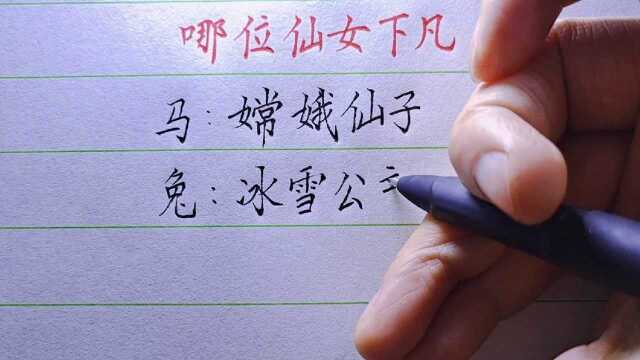 哪位仙女下凡
马:嫦娥仙子
兔:冰雪公